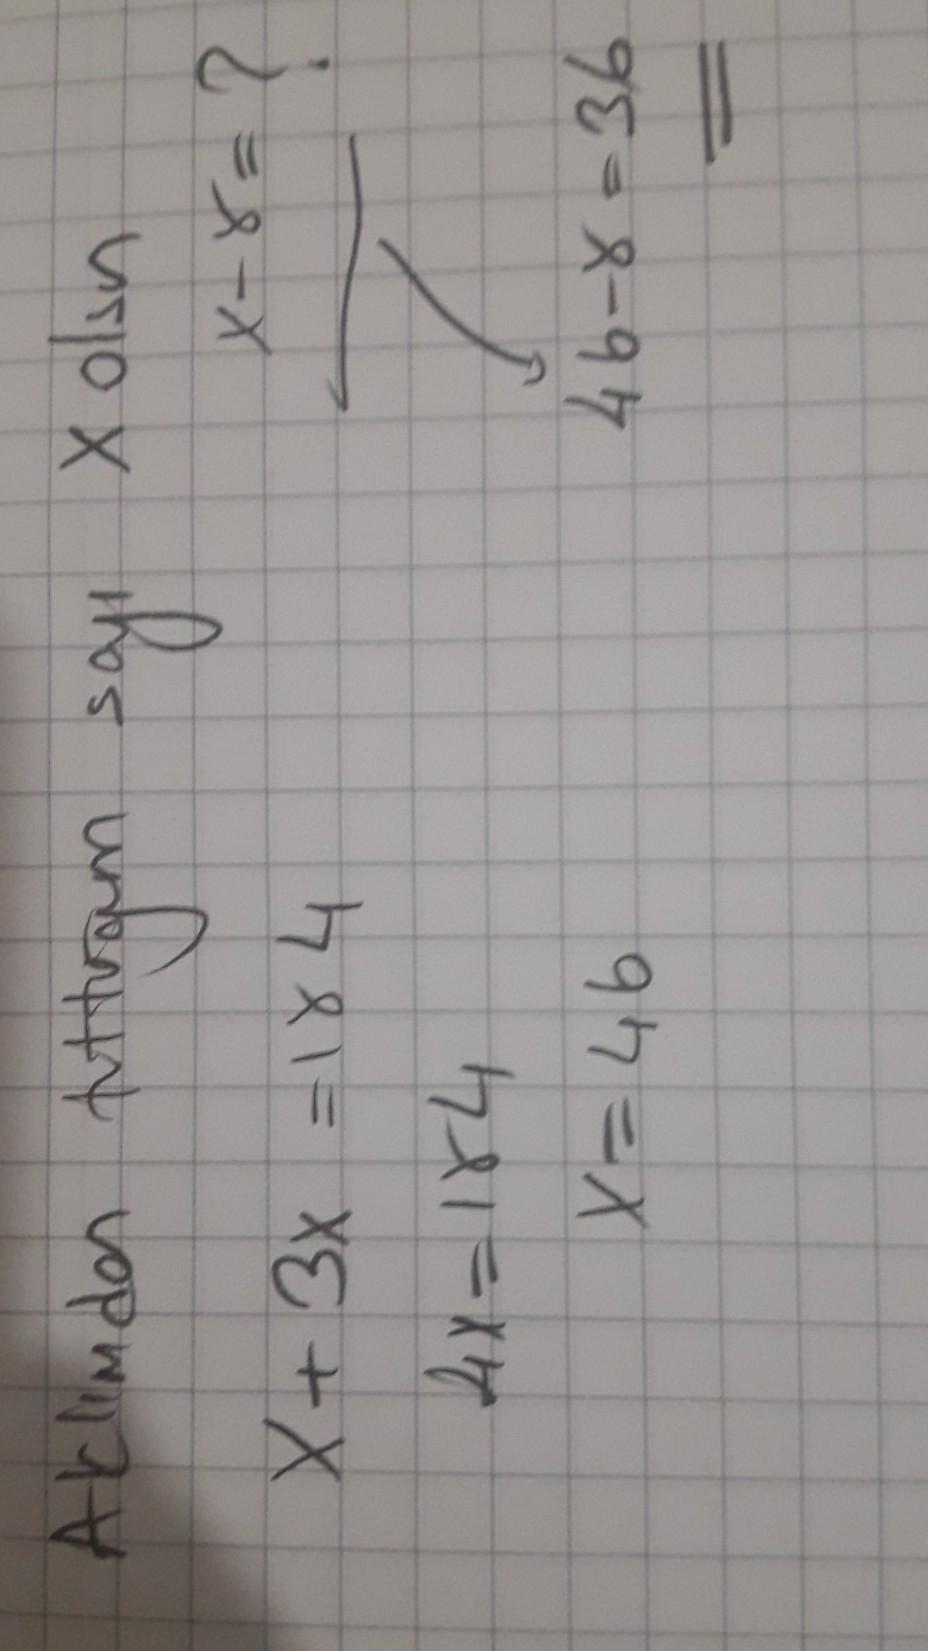 Aklımdan tuttuğum sayı X olsn
x-8=?
X+3x=184
4x=184
x=46
46-8=36